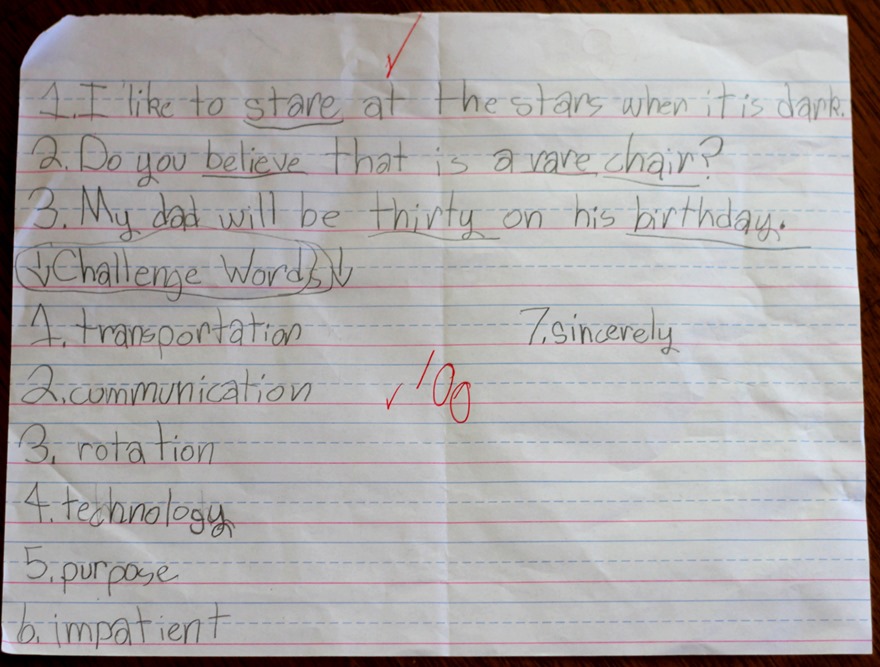 1. I like to stare at the stars when it is dark.
2. Do you believe that is a rare chair?
3. My dad will be thirty on his birthday.
↓Challenge Words↓
1. transportation
2. communication
3. rotation
4. technology
5. purpose
6. impatient
7. sincerely
✓100